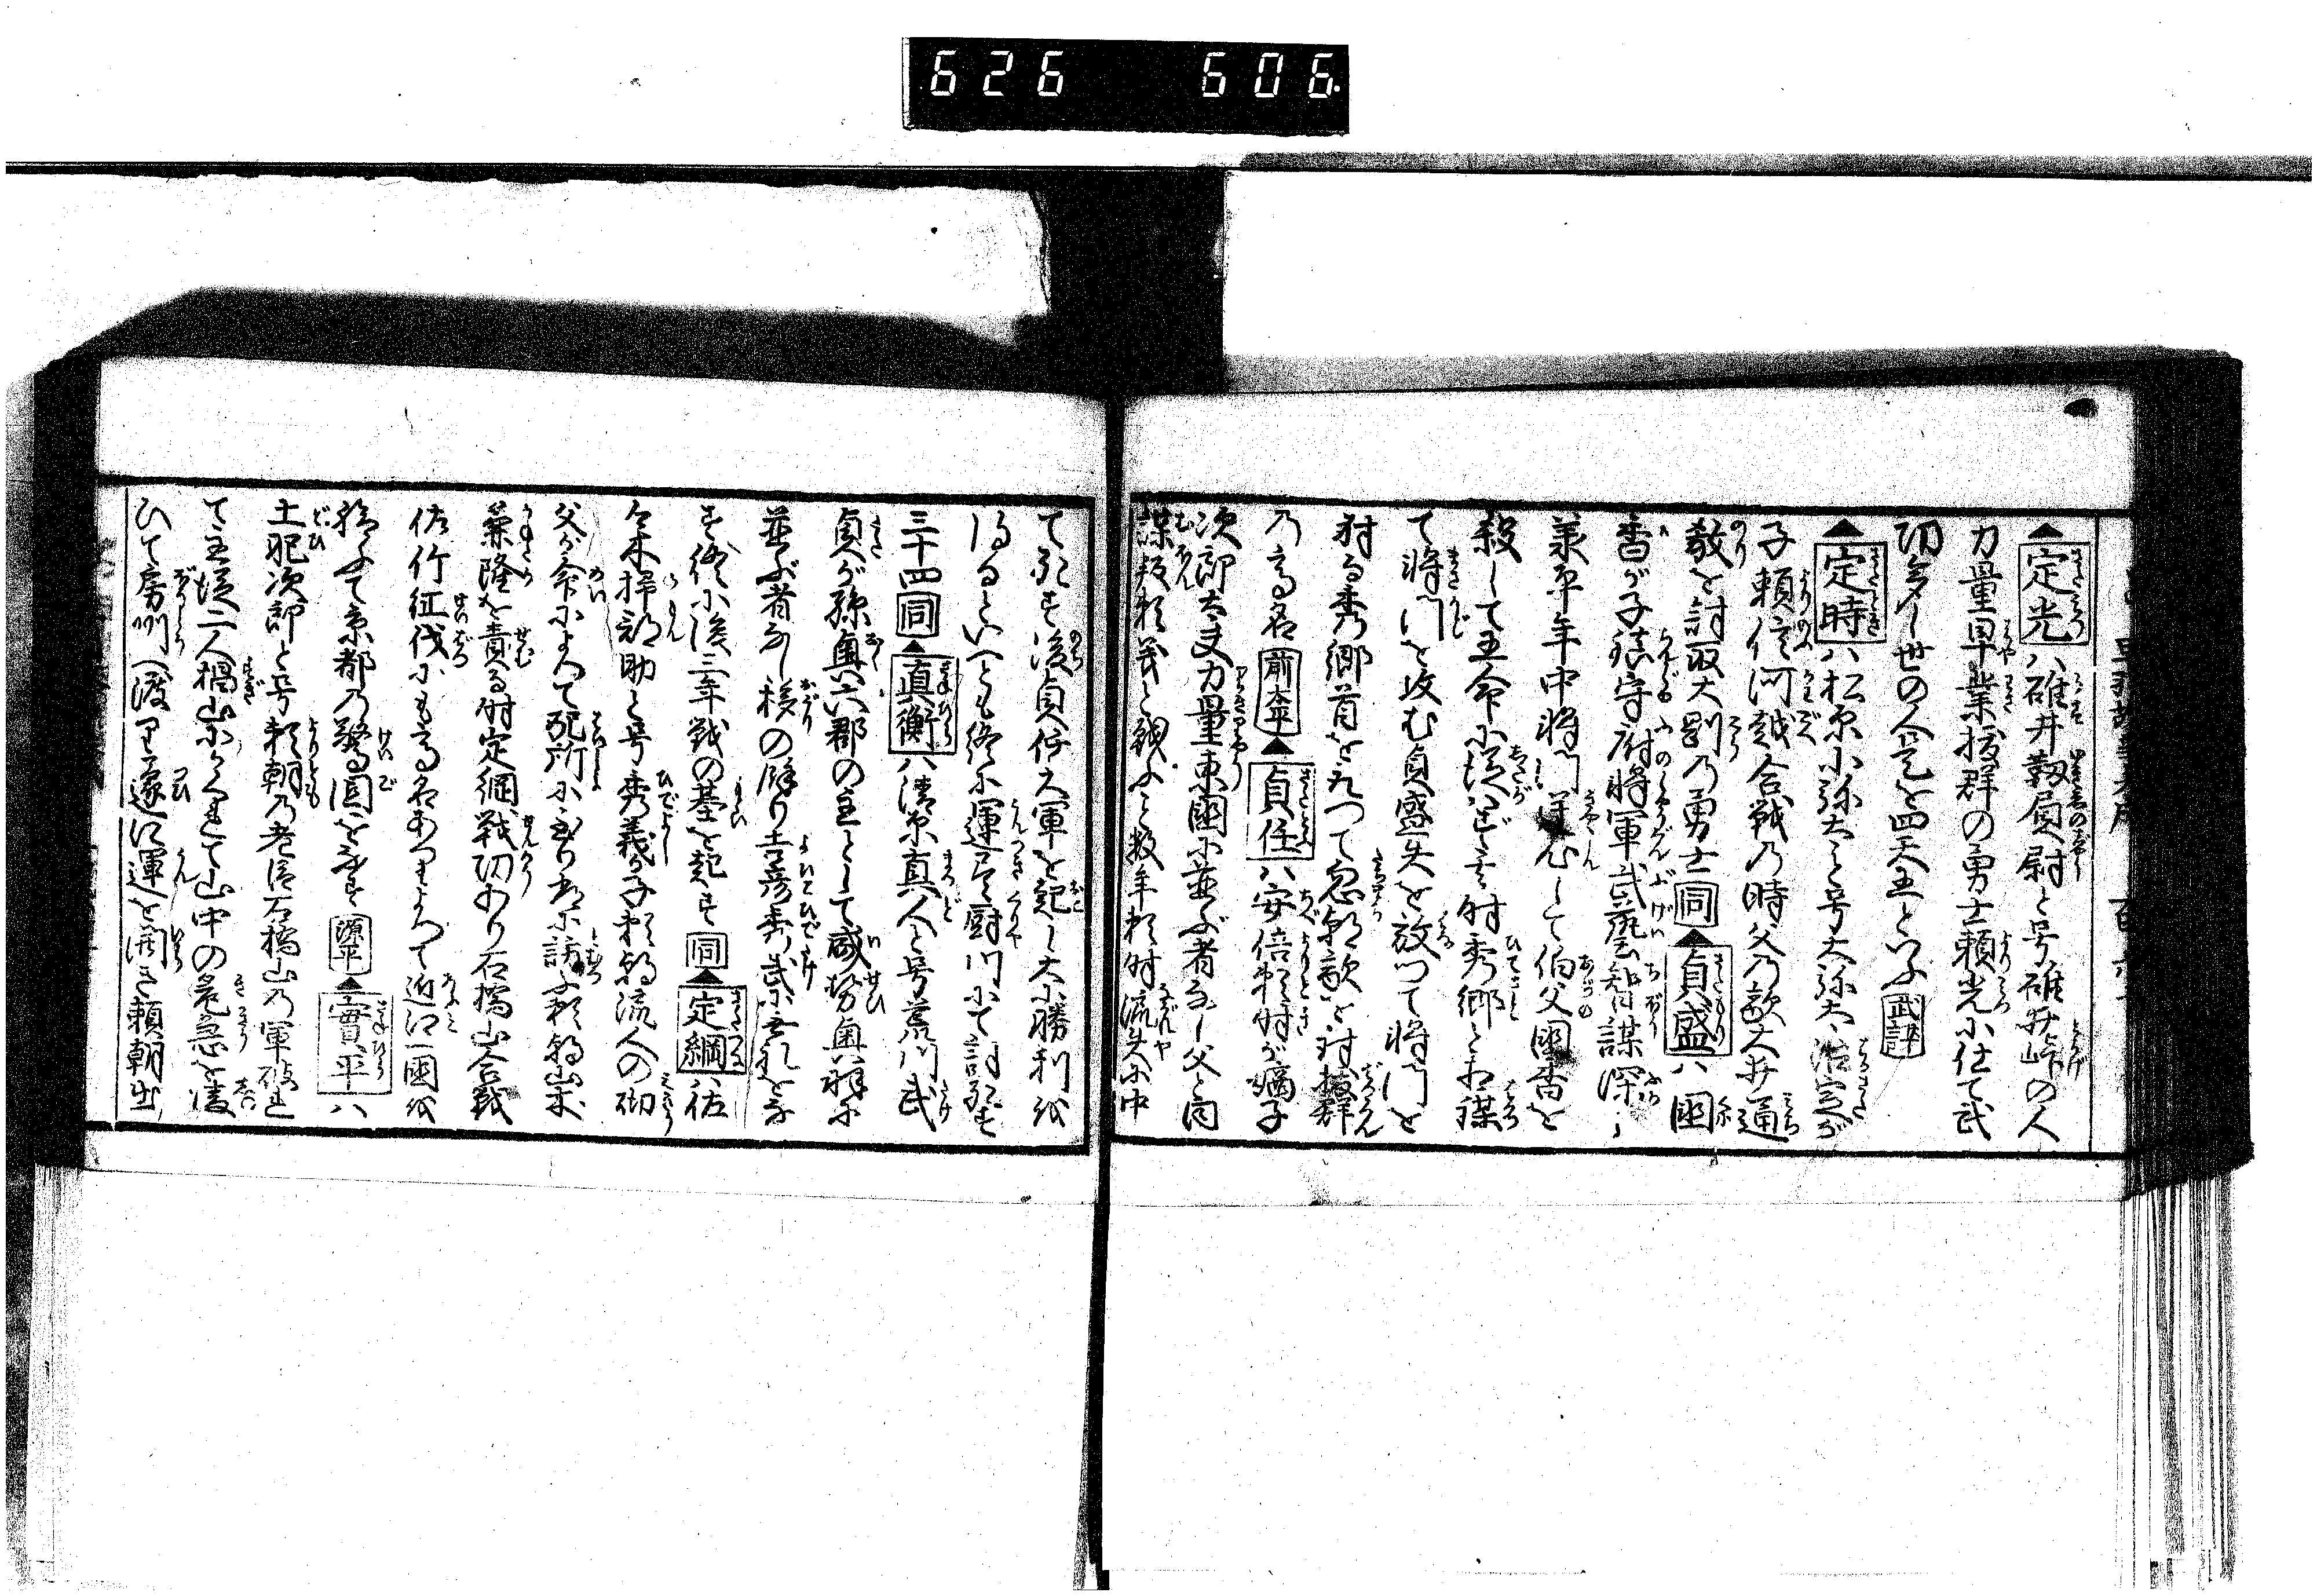 626 606
▲定光ハ碓井靱負尉と号碓井峠の人
力量早業抜群の勇士頼光に仕て武
功多し世の人是を四天王といふ武評
▲定時ハ松原小弥太と号大弥太定が
子頼信河越合戦乃時父乃敵大井通
教を討取大剛乃勇士同▲貞盛ハ国
香が子鎮守府将軍武藝智謀深し
承平年中将門して伯父国香を
殺して王命に従はず時秀郷と相謀
て将門を攻む貞盛矢を放つて将門を
射る秀郷首をとつて忽朝敵を対抜群
乃高名前太平▲貞任ハ安倍頼時が嫡子
次郎太夫力量東国に並ぶ者なし父と同
謀叛頼義と戦ふこと数年頼時流矢に中
て死す後貞任大軍を起し大に勝利を
得るといへども終に運尽厨川にて討死す
三十四同▲真衡ハ清原真人と号荒川武
貞が孫奥六郡の主として威勢奥羽に
並ぶ者なし移の餘り吉彦秀武に無礼をな
す終に後三年戦の基を起す同▲定綱ハ佐
々木掃部助と号秀義が子頼朝流人の砌
父が命によつて配所に至り常に訪ふ頼朝山木
兼隆を責る時定綱戦功あり石橋山合戦
佐竹征伐にも高名ありよつて近江一国を
給ふて京都乃警固をなす源平▲實平ハ
土肥次郎と号頼朝乃老臣石橋山乃軍破れ
て主従二人椙山にかくれて山中の危急を凌
ひて房州へ渡り遂に運を開き頼朝出